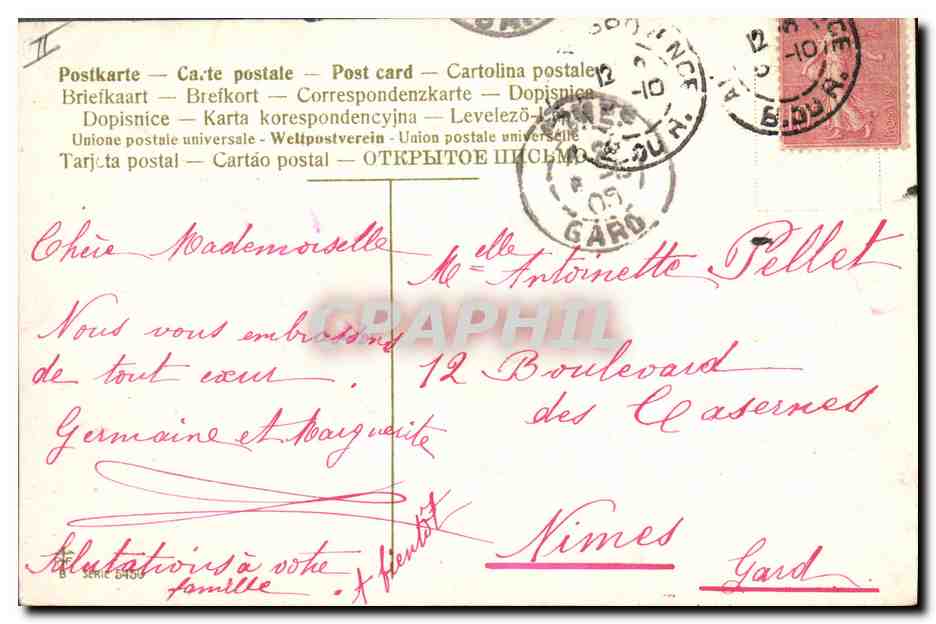 II
GARD
Postkarte — Carte postale — Post card — Cartolina postale
Briefkaart — Brefkort — Correspondenzkarte — Dopisnica
Dopisnice — Karta korespondencyjna — Levelező-
Unione postale universale - Weltpostverein - Union postale universelle
Tarjeta postal — Cartáo postal — ОТКРЫТОЕ ПИСЬМО
12
10
B. DU R.
12
10
B. DU R.
NIMES
09
GARD
Chère Mademoiselle
Nous vous embrassons
de tout cœur.
Germaine et Marguerite
Salutations à votre
famille.
A bientôt
Melle Antoinette Pellet
12 Boulevard
des Casernes
Nimes
Gard
CPAPHIL
B SERIE 5450